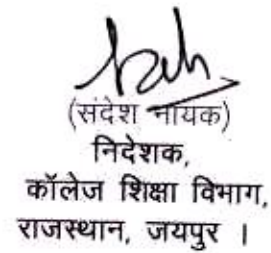 (संदेश नायक)
निदेशक,
कॉलेज शिक्षा विभाग,
राजस्थान, जयपुर ।